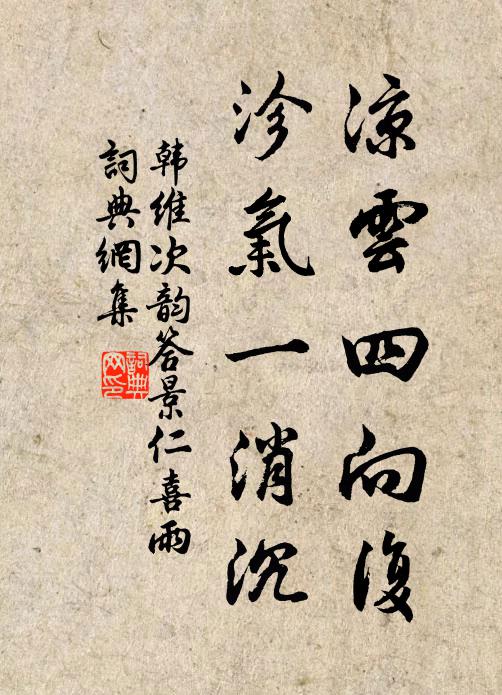 涼雲四向復
沴氣一消沉
韩維次韵答景仁喜雨
詞典網集
詞典网印